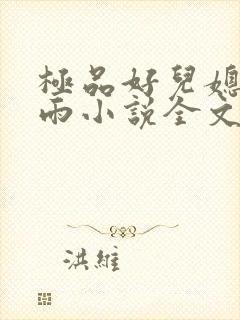 極品好兒媳
雨小説全文
洪維